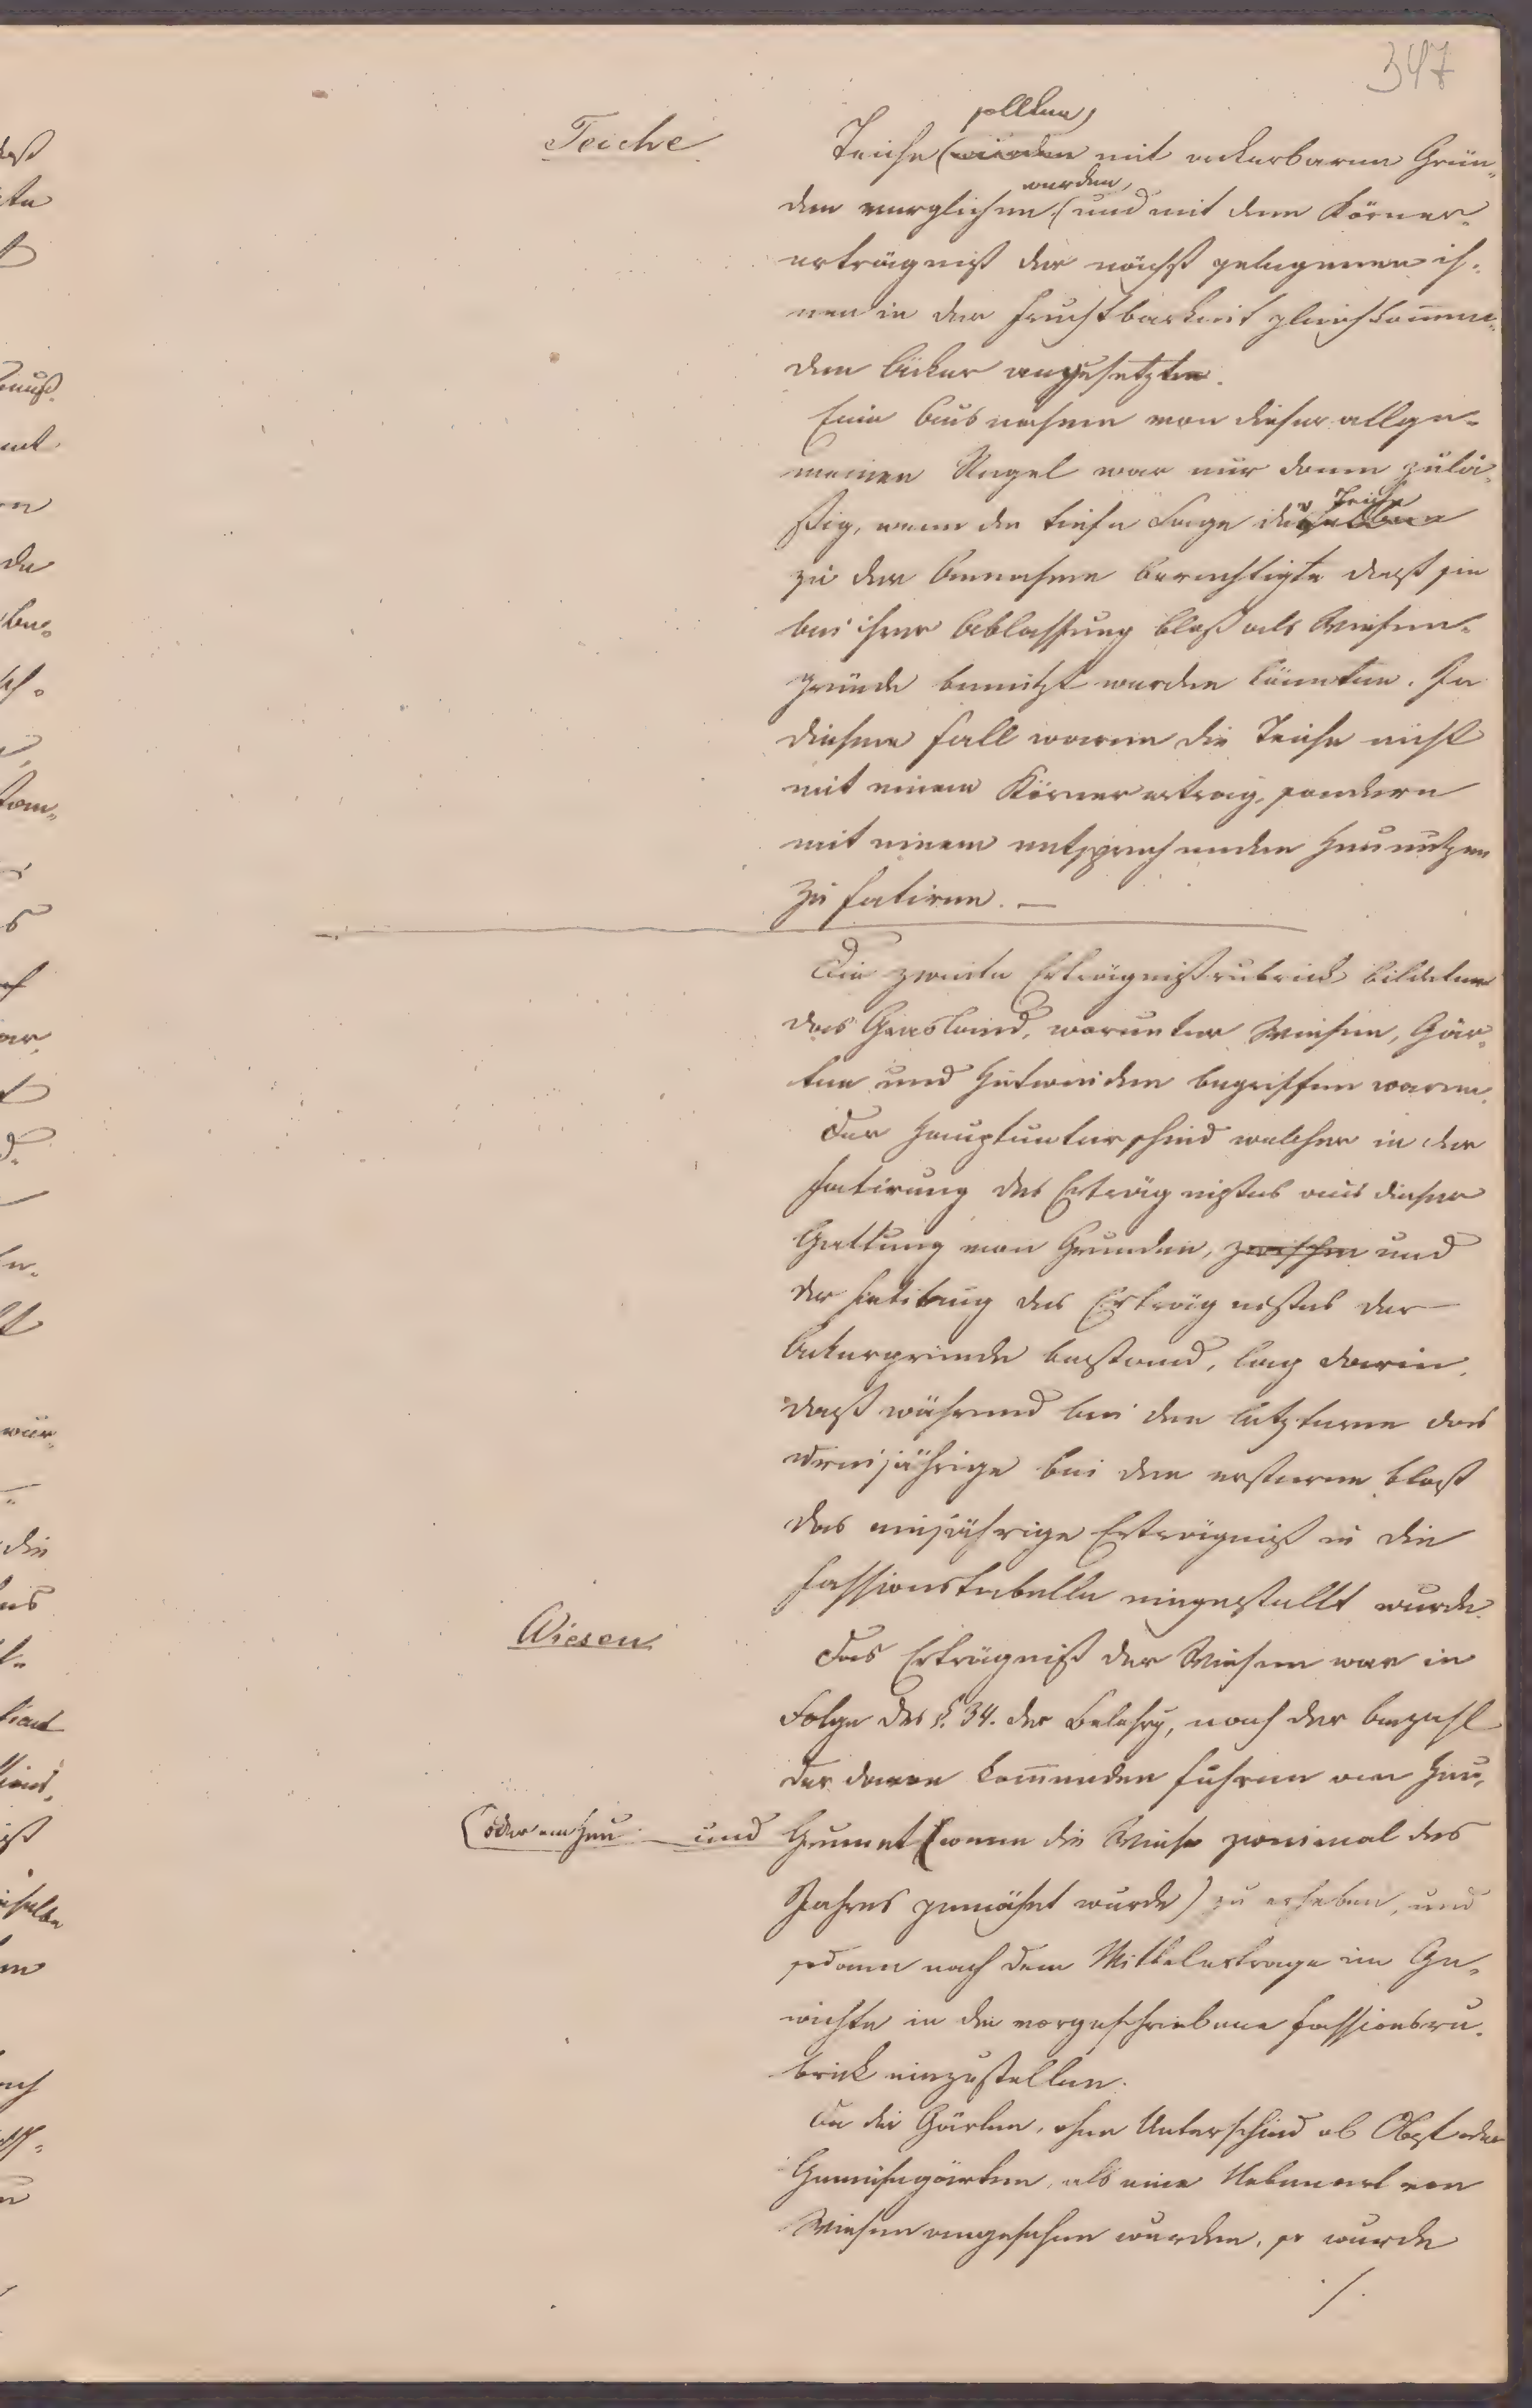 347
Teiche
sollten
Teiche (würden mit ackerbaren Grün„
werden,
den verglichen, (und mit dem Körner„
erträgniß der nächst gelegenen ih„
nen in der Fruchtbarkeit gleichkom̅en„
den Äcker angesetzt
Eine Ausnahme von dieser allge„
meinen Regel war nur dann zuläs„
Teiche
ßig, wenn die tiefe Lage der
zu der Annahme berechtigte daß sie
bei ihrer Ablassung bloß als Wiesen„
gründe benützt werden könnten. In
diesem Fall waren die Teiche nicht
mit einem Körnerertrag, sondern
mit einem entsprechenden Heunutzen
zu fatiren. —
Die zweite Erträgnißrubrick bildeten
das Grasland, worunter Wiesen, Gär„
ten und Hutweiden begriffen waren.
Der Hauptunterschied welcher in der
Fatirung des Erträgnißes aus dieser
Gattung von Grunden, zwischen und
der Fatirung des Erträgnißes der
Ackergründe bestand, lag darin,
daß während bei den letzteren das
dreijährige bei den ersteren bloß
das einjährige Erträgniß in die
Fassionstabelle eingestellt wurde.
Wiesen
Das Erträgniß der Wiesen war in
Folge des §. 34. der Belehrg, nach der Anzahl
der davon kom̅enden Fuhren von Heu,
(oder an Heu und Grumet (wenn die Wiese zweimal des
Jahres gemähet wurde) zu erheben, und
sodann nach dem Mittelertrage im Ge„
wichte in die vorgeschriebene Fassionsru„
brick einzustellen.
Da die Gärten, ohne Unterschied ob Obst oder
Gemüsegärten, als eine Nebenart von
Wiesen angesehen wurden, so wurde
./.